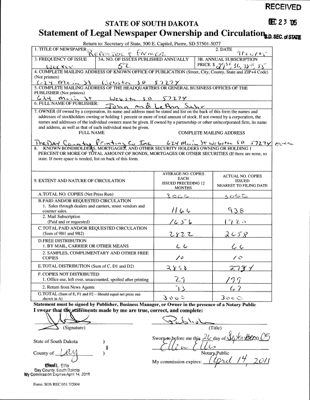 RECEIVED
DEC 23 '05
S.D. SEC. of STATE
STATE OF SOUTH DAKOTA
Statement of Legal Newspaper Ownership and Circulation
Return to: Secretary of State, 500 E. Capitol, Pierre, SD 57501-5077
1. TITLE OF NEWSPAPER
2. DATE
Reporter & Farmer
1. FREQUENCY OF ISSUE
3A. NO. OF ISSUES PUBLISHED ANNUALLY
3B. ANNUAL SUBSCRIPTION
PRICE $
52
4. COMPLETE MAILING ADDRESS OF KNOWN OFFICE OF PUBLICATION (Street, City, County, State and ZIP+4 Code)
(Not printers)
624 Main St Webster SD 57274
5. COMPLETE MAILING ADDRESS OF THE HEADQUARTERS OR GENERAL BUSINESS OFFICES OF THE
PUBLISHER (Not printers)
624 Main Webster SD 57274
6. FULL NAME OF PUBLISHER:
John and LeAnn Suhr
7. OWNER (If owned by a corporation, its name and address must be stated and list on the back of this form the names and
addresses of stockholders owning or holding 1 percent or more of total amount of stock. If not owned by a corporation, the
names and addresses of the individual owners must be given. If owned by a partnership or other unincorporated firm, its name
and address, as well as that of each individual must be given.
FULL NAME
COMPLETE MAILING ADDRESS
The Day County Printing Co Inc 624 Main St Webster SD 57274
8. KNOWN BONDHOLDERS, MORTGAGEES, AND OTHER SECURITY HOLDERS OWNING OR HOLDING 1
PERCENT OR MORE OF TOTAL AMOUNT OF BONDS, MORTGAGES OR OTHER SECURITIES (If there are none, so
state. If more space is needed, for list on back of this form.
9. EXTENT AND NATURE OF CIRCULATION
AVERAGE NO. COPIES
EACH
ISSUED PRECEDING 12
MONTHS
ACTUAL NO. COPIES
ISSUED
NEAREST TO FILING DATE
A. TOTAL NO. COPIES (Net Press Run)
3000
3000
B. PAID AND/OR REQUESTED CIRCULATION
1. Sales through dealers and carriers, street vendors and
counter sales.
1166
938
2. Mail Subscription
(Paid and or requested)
1656
C. TOTAL PAID AND/OR REQUESTED CIRCULATION
(Sum of 9B1 and 9B2)
2822
2658
D. FREE DISTRIBUTION
1. BY MAIL, CARRIER OR OTHER MEANS
66
66
2. SAMPLES, COMPLIMENTARY AND OTHER FREE
COPIES
10
10
E. TOTAL DISTRIBUTION (Sum of C, D1 and D2)
F. COPIES NOT DISTRIBUTED
1. Office use, left over, unaccounted, spoiled after printing
2. Return from News Agents
33
67
G. TOTAL (Sum of E, F1 and F2 – Should equal net press run
shown in A)
3000
3000
Statement must be signed by Publisher, Business Manager, or Owner in the presence of a Notary Public
I swear that the statements made by me are true, correct, and complete:
Publisher
(Signature)
(Title)
State of South Dakota )
§
County of Day )
Sworn to before me this day of September 05
Notary Public
My commission expires: April 14 2011
Day County, South Dakota
My Commission Expires April 14, 2011
Form: SOS REC 051 7/2004